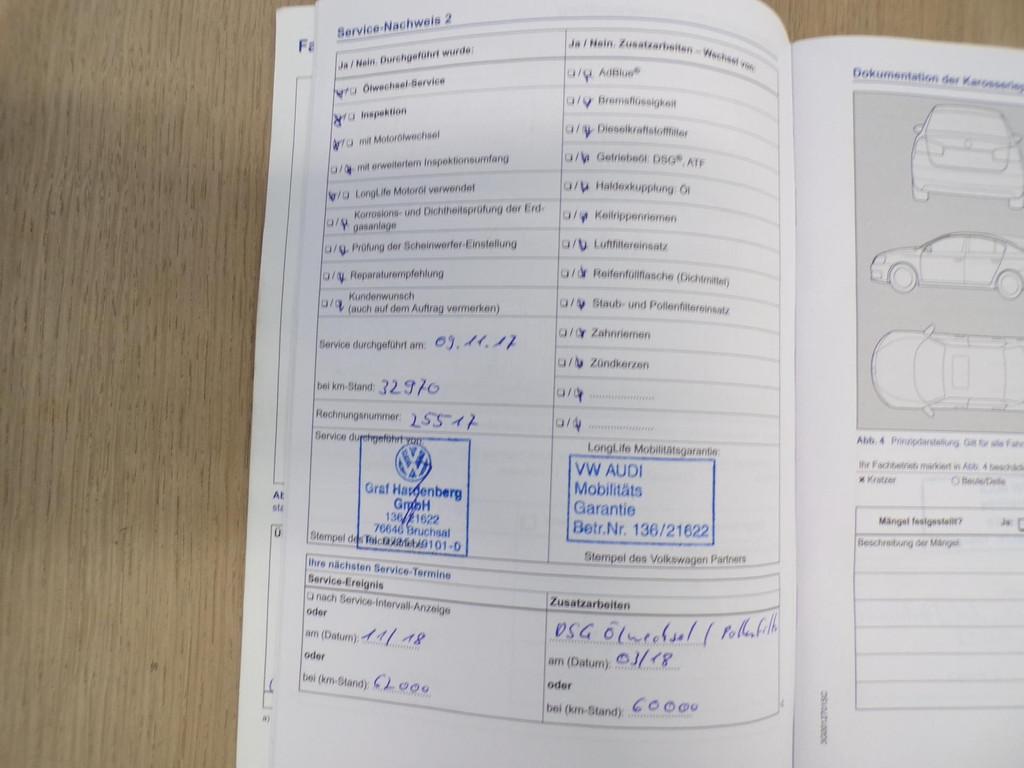 Service-Nachweis 2
Ja / Nein. Durchgeführt wurde:
Ölwechsel-Service
Inspektion
mit Motorölwechsel
mit erweitertem Inspektionsumfang
LongLife Motoröl verwendet
Korrosions- und Dichtheitsprüfung der Erd-
gasanlage
Prüfung der Scheinwerfer-Einstellung
Reparaturempfehlung
Kundenwunsch
(auch auf dem Auftrag vermerken)
Service durchgeführt am: 09.11.17
bei km-Stand: 32970
Rechnungsnummer: 25517
Service durchgeführt von:
Graf Hardenberg
GmbH
136/21622
76646 Bruchsal
Stempel des
Ja / Nein. Zusatzarbeiten – Wechsel von:
AdBlue®
Bremsflüssigkeit
Dieselkraftstofffilter
Getriebeöl: DSG®, ATF
Haldexkupplung: Öl
Keilrippenriemen
Luftfiltereinsatz
Reifenfüllflasche (Dichtmittel)
Staub- und Pollenfiltereinsatz
Zahnriemen
Zündkerzen
LongLife Mobilitätsgarantie:
VW AUDI
Mobilitäts
Garantie
Betr.Nr. 136/21622
Stempel des Volkswagen Partners
Ihre nächsten Service-Termine
Service-Ereignis
nach Service-Intervall-Anzeige
oder
am (Datum): 11/18
oder
bei (km-Stand): 62000
Zusatzarbeiten
DSG Ölwechsel / Pollenfilt
am (Datum): 03/18
oder
bei (km-Stand): 60000
Dokumentation der Karosserie
Abb. 4 Prinzipdarstellung. Gilt für alle Fahr
Ihr Fachbetrieb markiert in Abb. 4 beschäd
Kratzer
Beule/Delle
Mängel festgestellt? Ja:
Beschreibung der Mängel: